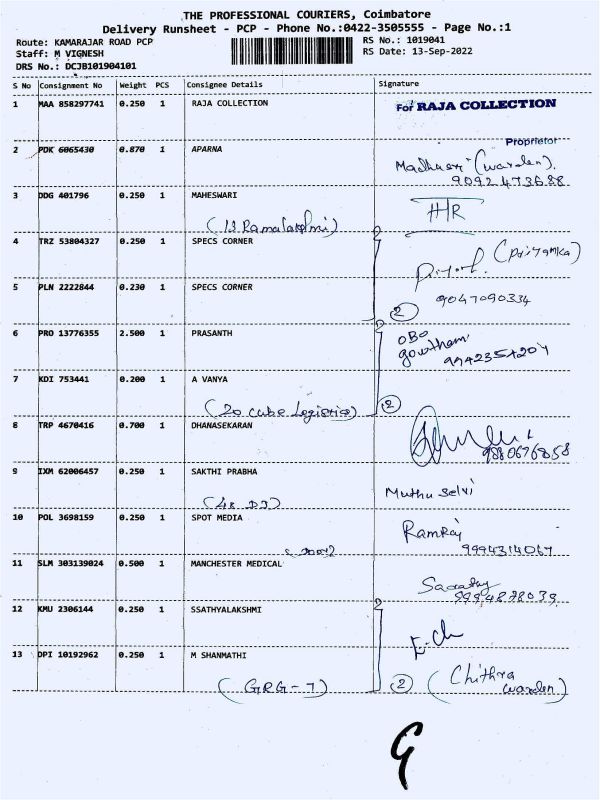 THE PROFESSIONAL COURIERS, Coimbatore
Delivery Runsheet - PCP - Phone No.:0422-3505555 - Page No.:1
Route: KAMARAJAR ROAD PCP
Staff: M VIGNESH
DRS No.: DCJB101904101
RS No.: 1019041
RS Date: 13-Sep-2022
S No Consignment No Weight PCS Consignee Details Signature
1 MAA 858297741 0.250 1 RAJA COLLECTION For RAJA COLLECTION
Proprietor
2 PDK 6065430 0.870 1 APARNA Madhusri (warden)
9092473688
3 DDG 401796 0.250 1 MAHESWARI HR
(13 Ramalakshmi)
4 TRZ 53804327 0.250 1 SPECS CORNER (Priyanka)
5 PLN 2222844 0.230 1 SPECS CORNER 9047090334
2
6 PRO 13776355 2.500 1 PRASANTH OBO
gowtham
9942354204
7 KDI 753441 0.200 1 A VANYA
(20 cube Logistics) 2
8 TRP 4670416 0.700 1 DHANASEKARAN
9880676858
9 IXM 62006457 0.250 1 SAKTHI PRABHA Muthu selvi
10 POL 3698159 0.250 1 SPOT MEDIA Ramraj
9994314067
11 SLM 303139024 0.500 1 MANCHESTER MEDICAL
9994878039
12 KMU 2306144 0.250 1 SSATHYALAKSHMI E-Ch
13 DPI 10192962 0.250 1 M SHANMATHI (Chithra
warden)
(GRG-7) 2
9